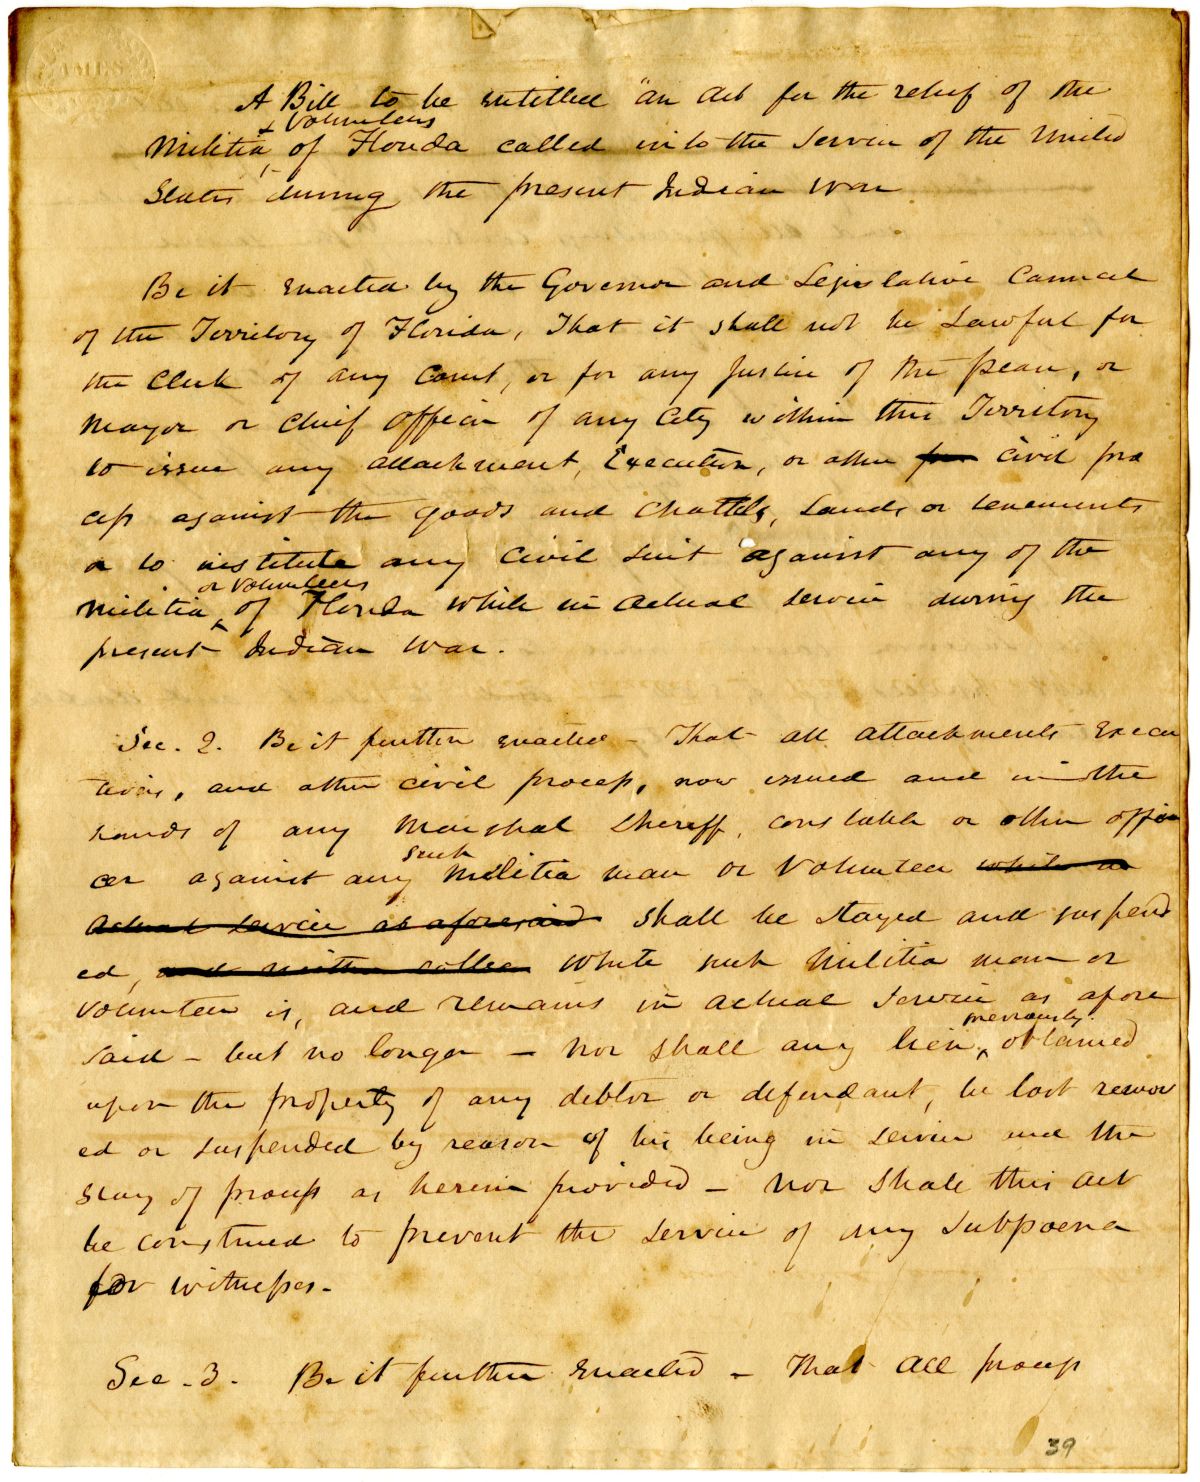 A Bill to be entitled "an Act for the relief of the
& Volunteers
Militia, of Florida called into the Service of the United
States during the present Indian War
Be it enacted by the Governor and Legislative Council
of the Territory of Florida, That it shall not be Lawful for
the Clerk of any Court, or for any Justice of the Peace, or
Mayor or Chief Officer of any City within this Territory
to issue any attachment, Execution, or other civil pro
cess against the goods and Chattels, Lands, or tenements
or to institute any Civil suit against any of the
or Volunteers
Militia, of Florida while in actual service during the
present Indian War.
Sec. 2. Be it further enacted - That all attachments Execu
tions, and other civil process, now issued and in the
hands of any Marshal Sheriff, constable or other offi
such
cer against any Militia man or Volunteer while in
actual service as aforesaid shall be stayed and suspend
ed, while such Militia man or
Volunteer is, and remains in actual Service as afore
previously
said - but no longer - Nor shall any lien, obtained
upon the property of any debtor or defendant, be lost remov
ed or suspended by reason of his being in service and the
stay of process as herein provided - Nor Shall this Act
be construed to prevent the service of any Subpoena
for witnesses -
Sec. 3. Be it further enacted - That All process
39